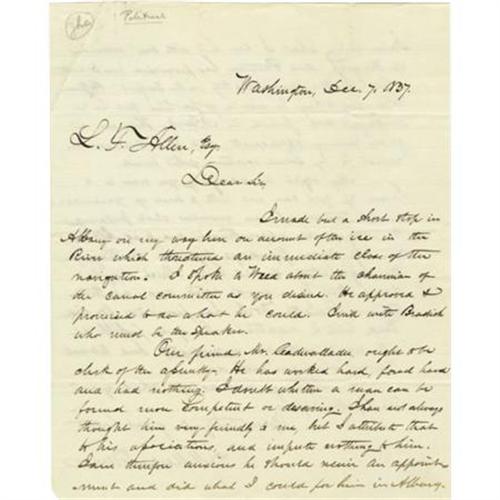 Political
Washington, Dec. 7, 1837.
L. F. Allen, Esq.
Dear Sir
I made but a short stop in
Albany on my way here on account of the ice in the
River which threatened an immediate close of the
navigation. I spoke to Weed about the chairman of
the canal committee as you desired. He approved &
promised to do what he could. Coincid with Bradish
who must be the Speaker.
Our friend, Mr. Cadwallader, ought to be
clerk of the assembly. He has worked hard, fared hard
and had nothing. I doubt whether a man can be
found more competent or deserving. I have not always
thought him very friendly to me, but I attribute that
to his associations, and impute nothing to him.
I am therefore anxious he should receive an appoint
ment and did what I could for him in Albany.